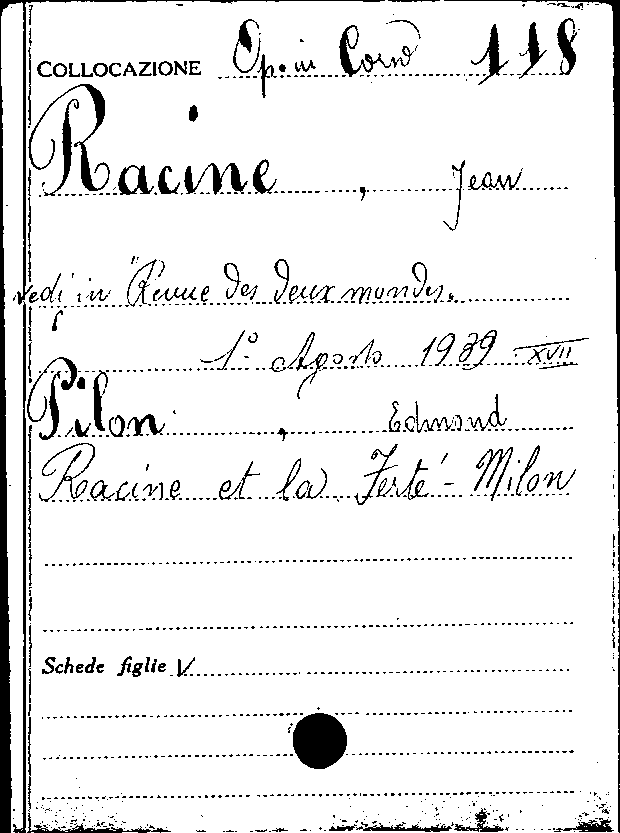 COLLOCAZIONE Op. in Corso 118
Racine, Jean
vedi in "Revue des deux mondes.
1º Agosto 1939 - XVII
Pilon, Edmond
Racine et la Ferté-Milon
Schede figlie V